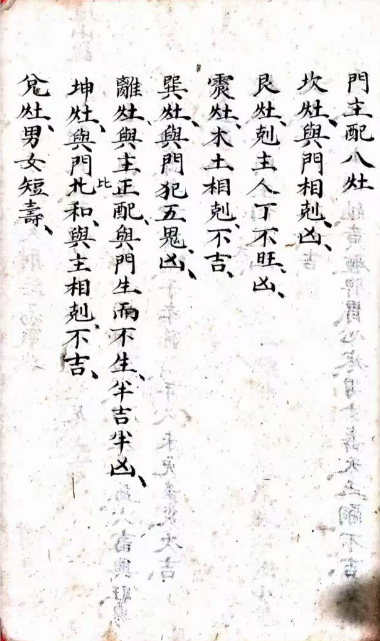 門主配八灶
坎灶、與門相剋、凶、
艮灶、剋主人丁不旺、凶、
震灶、木土相剋、不吉、
巽灶、與門犯五鬼凶、
離灶、與主正配、與門生而不生、半吉半凶、
坤灶、與門比和、與主相剋、不吉、
兌灶、男女短壽、